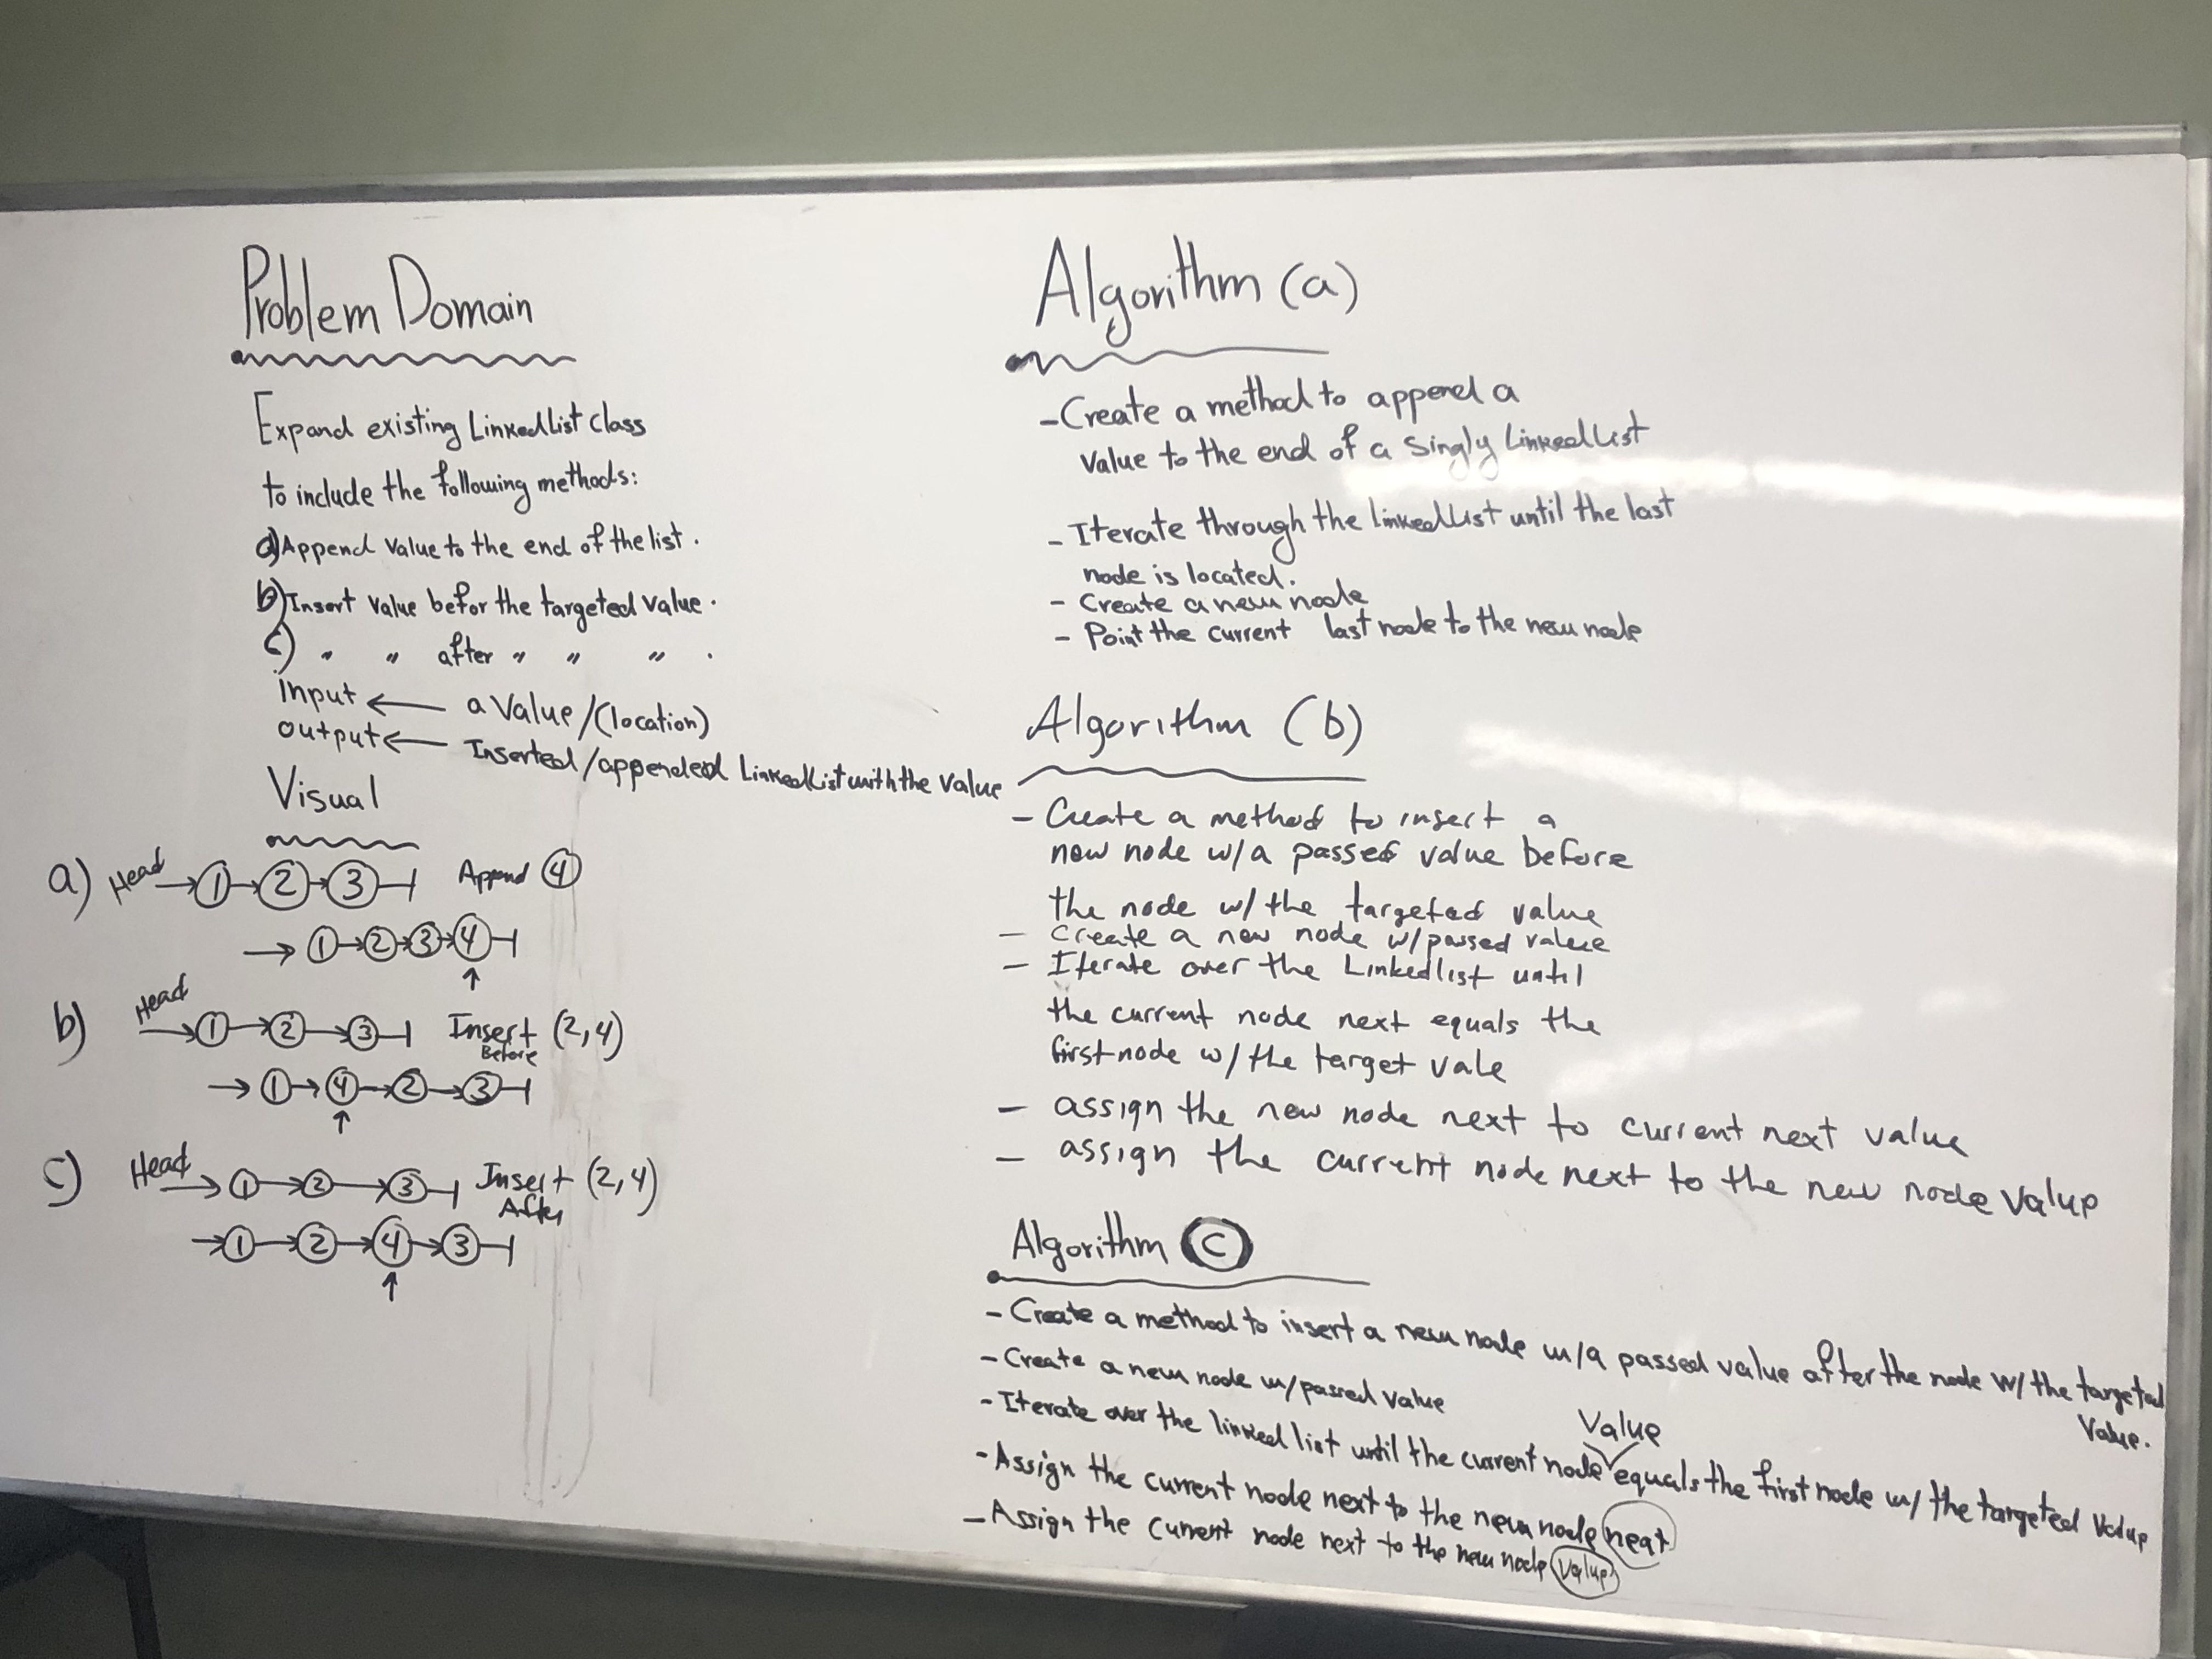 Problem Domain
Expand existing LinkedList class
to include the following methods:
a) Append value to the end of the list.
b) Insert value befor the targeted value.
c) " " after " " " .
input ← a value/(location)
output ← Inserted/appended LinkedList with the value
Visual
a) Head → 1 → 2 → 3 Append 4
→ 1 → 2 → 3 → 4
↑
b) Head → 1 → 2 → 3 Insert (2,4)
Before
→ 1 → 4 → 2 → 3
↑
c) Head → 1 → 2 → 3 Insert (2,4)
After
→ 1 → 2 → 4 → 3
↑
Algorithm (a)
- Create a method to append a
value to the end of a singly Linkedlist
- Iterate through the linkedlist until the last
node is located.
- Create a new node
- Point the current last node to the new node
Algorithm (b)
- Create a method to insert a
new node w/a passed value before
the node w/ the targeted value
- Create a new node w/passed value
- Iterate over the Linkedlist until
the current node next equals the
first node w/ the target vale
- assign the new node next to current next value
- assign the current node next to the new node value
Algorithm C
- Create a method to insert a new node w/a passed value after the node w/ the targeted
value.
- Create a new node w/passed value
Value
- Iterate over the linked list until the current node equals the first node w/ the targeted value
- Assign the current node next to the new node next
- Assign the current node next to the new node value